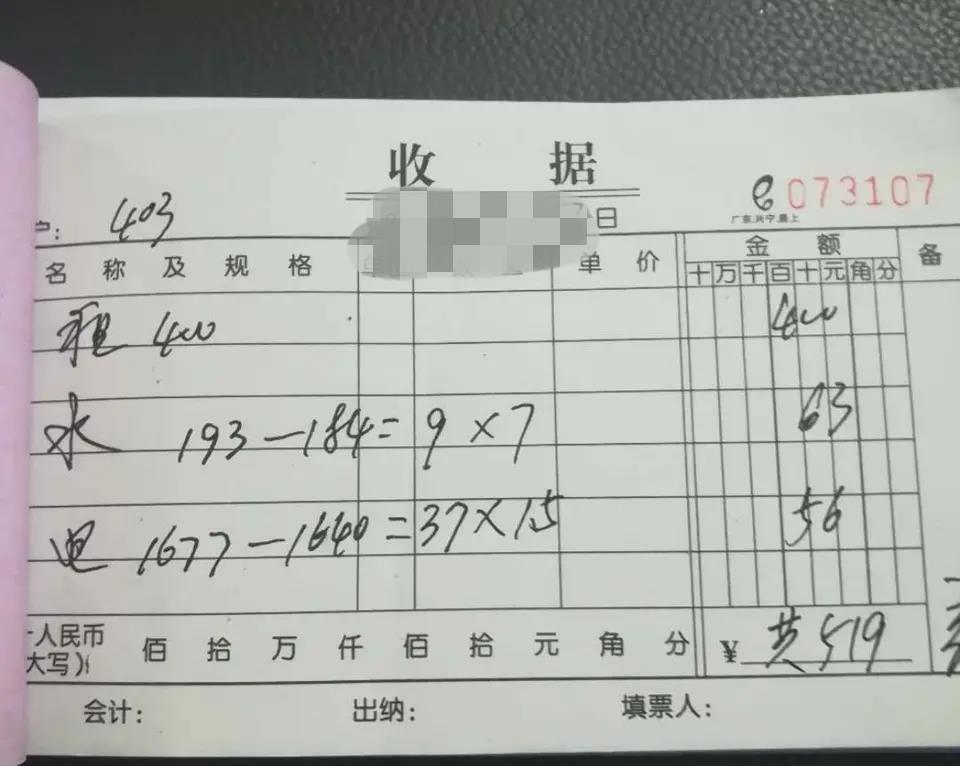 收 据
073107
广东.兴宁.最上
户: 403
日
名 称 及 规 格 单 价 金 额 备
十 万 千 百 十 元 角 分
租 400 400
水 193-184= 9×7 63
电 1677-1640=37×1.5 56
人民币 佰 拾 万 仟 佰 拾 元 角 分 ¥ 共519
大写)
会计: 出纳: 填票人: